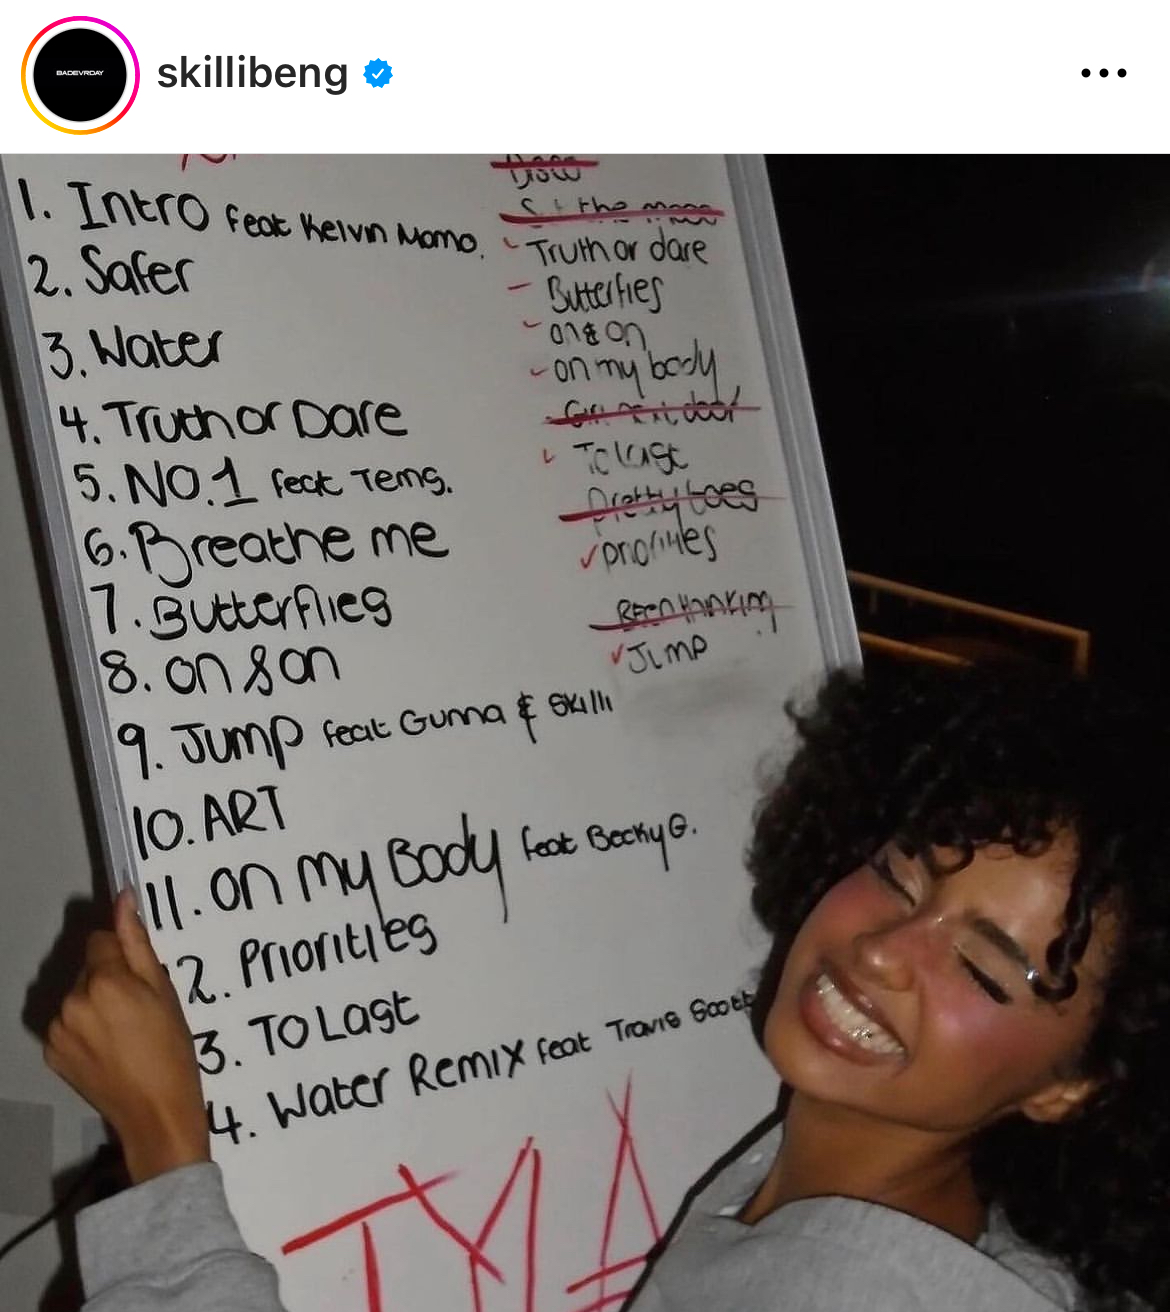 BADEVRDAY
skillibeng
1. Intro feat Kelvin Momo.
2. Safer
3. Water
4. Truth or Dare
5. NO.1 feat Tems.
6. Breathe me
7. Butterflies
8. on & on
9. Jump feat Gunna & Skilli
10. ART
11. on my Body feat Becky G.
2. Priorities
3. TO Last
4. Water Remix feat Travis Scott
Disco
the moon
Truth or dare
Butterflies
on & on
on my body
Girl next door
To last
Pretty toes
priorities
Been thinking
Jump
TYLA